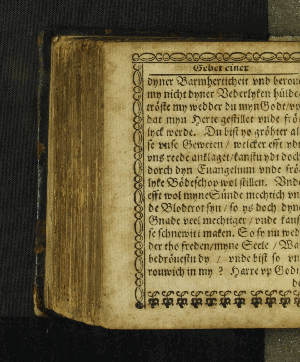 Gebet einer
dyner Barmherticheit vnd berou
my nicht dyner Vederlyken hülde
tröste my wedder du myn Godt/vp
dat myn Herte gestillet vnde frö
lyck werde. Du bist yo gröther al
se vnse Geweten / welcker efft ydt
vns reede anklaget/kanstu ydt doch
dorch dyn Euangelium vnde frö
lyke Bödeschop wol stillen. Vnde
efft wol myne Sünde mechtich vn
de Blodtrot syn / so ys doch dyne
Gnade veel mechtiger / vnde kanst
se schnewitt maken. So sy nu wed
der tho freden/myne Seele / Wat
bedröuestu dy / vnde bist so vn
rouwich in my ? Harre vp Godt